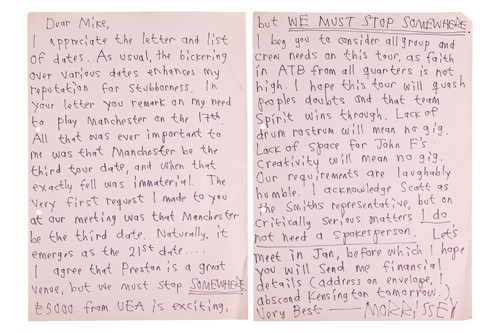 Dear Mike,
I appreciate the letter and list
of dates. As usual, the bickering
over various dates enhances my
reputation for Stubborness. In
your letter you remark on my need
to play Manchester on the 17th.
All that ever important to
me was that Manchester be the
third tour date, and when that
exactly fell was immaterial. The
very first request I made to you
at our meeting was that Manchester
be the third date. Naturally, it
emerges as the 21st date....
I agree that Preston is a great
venue, but we must stop SOMEWHERE.
£5000 from UEA is exciting,
but WE MUST STOP SOMEWHERE.
I beg you to consider all group and
crew needs on this tour, as faith
in ATB from all quarters is not
high. I hope this tour will quash
peoples doubts and that team
Spirit wins through. Lack of
drum rostrum will mean no gig.
Lack of space for John F's
Creativity will mean no gig.
Our requirements are laughably
humble. I acknowledge Scott as
the Smiths representative, but on
critically serious matters I do
not need a spokesperson. Lets
meet in Jan, before which I hope
you will Send me financial
details (address on envelope, I
abscond Kensington tomorrow.)
Very Best — MORRISSEY